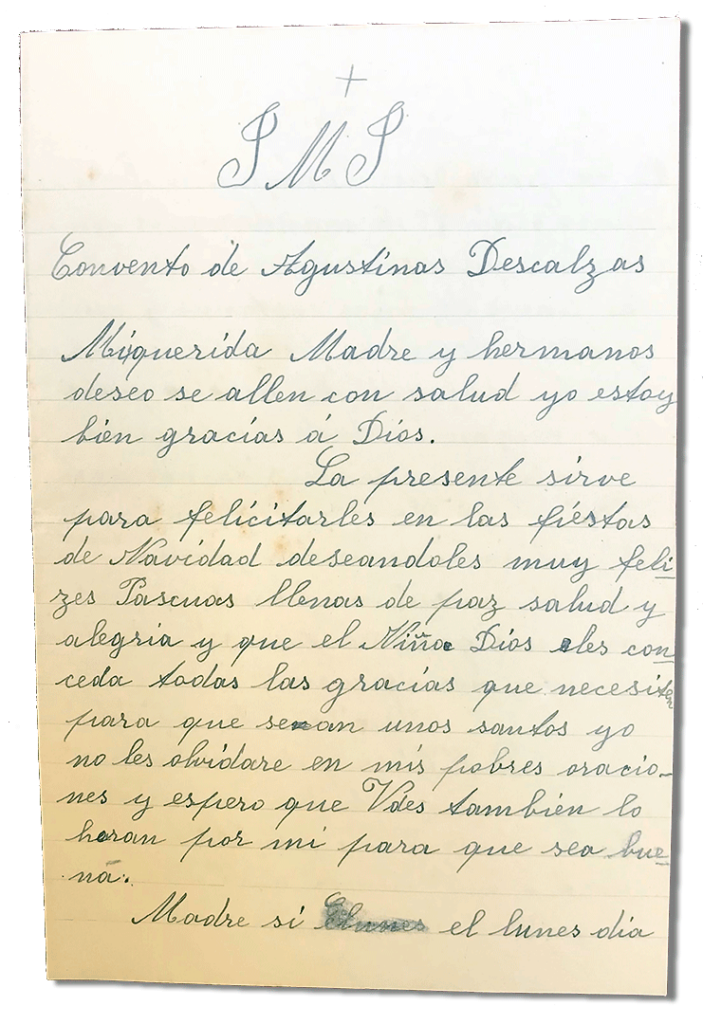 +
J M J
Convento de Agustinas Descalzas
Mi querida Madre y hermanos
deseo se allen con salud yo estoy
bien gracias á Dios.
La presente sirve
para felicitarles en las fiestas
de Navidad deseandoles muy feli-
zes Pascuas llenas de paz salud y
alegria y que el Niño Dios les con-
ceda todas las gracias que necesiten
para que sean unos santos yo
no les olvidare en mis pobres oracio-
nes y espero que Vdes también lo
haran por mi para que sea bue-
na.
Madre si el lunes dia